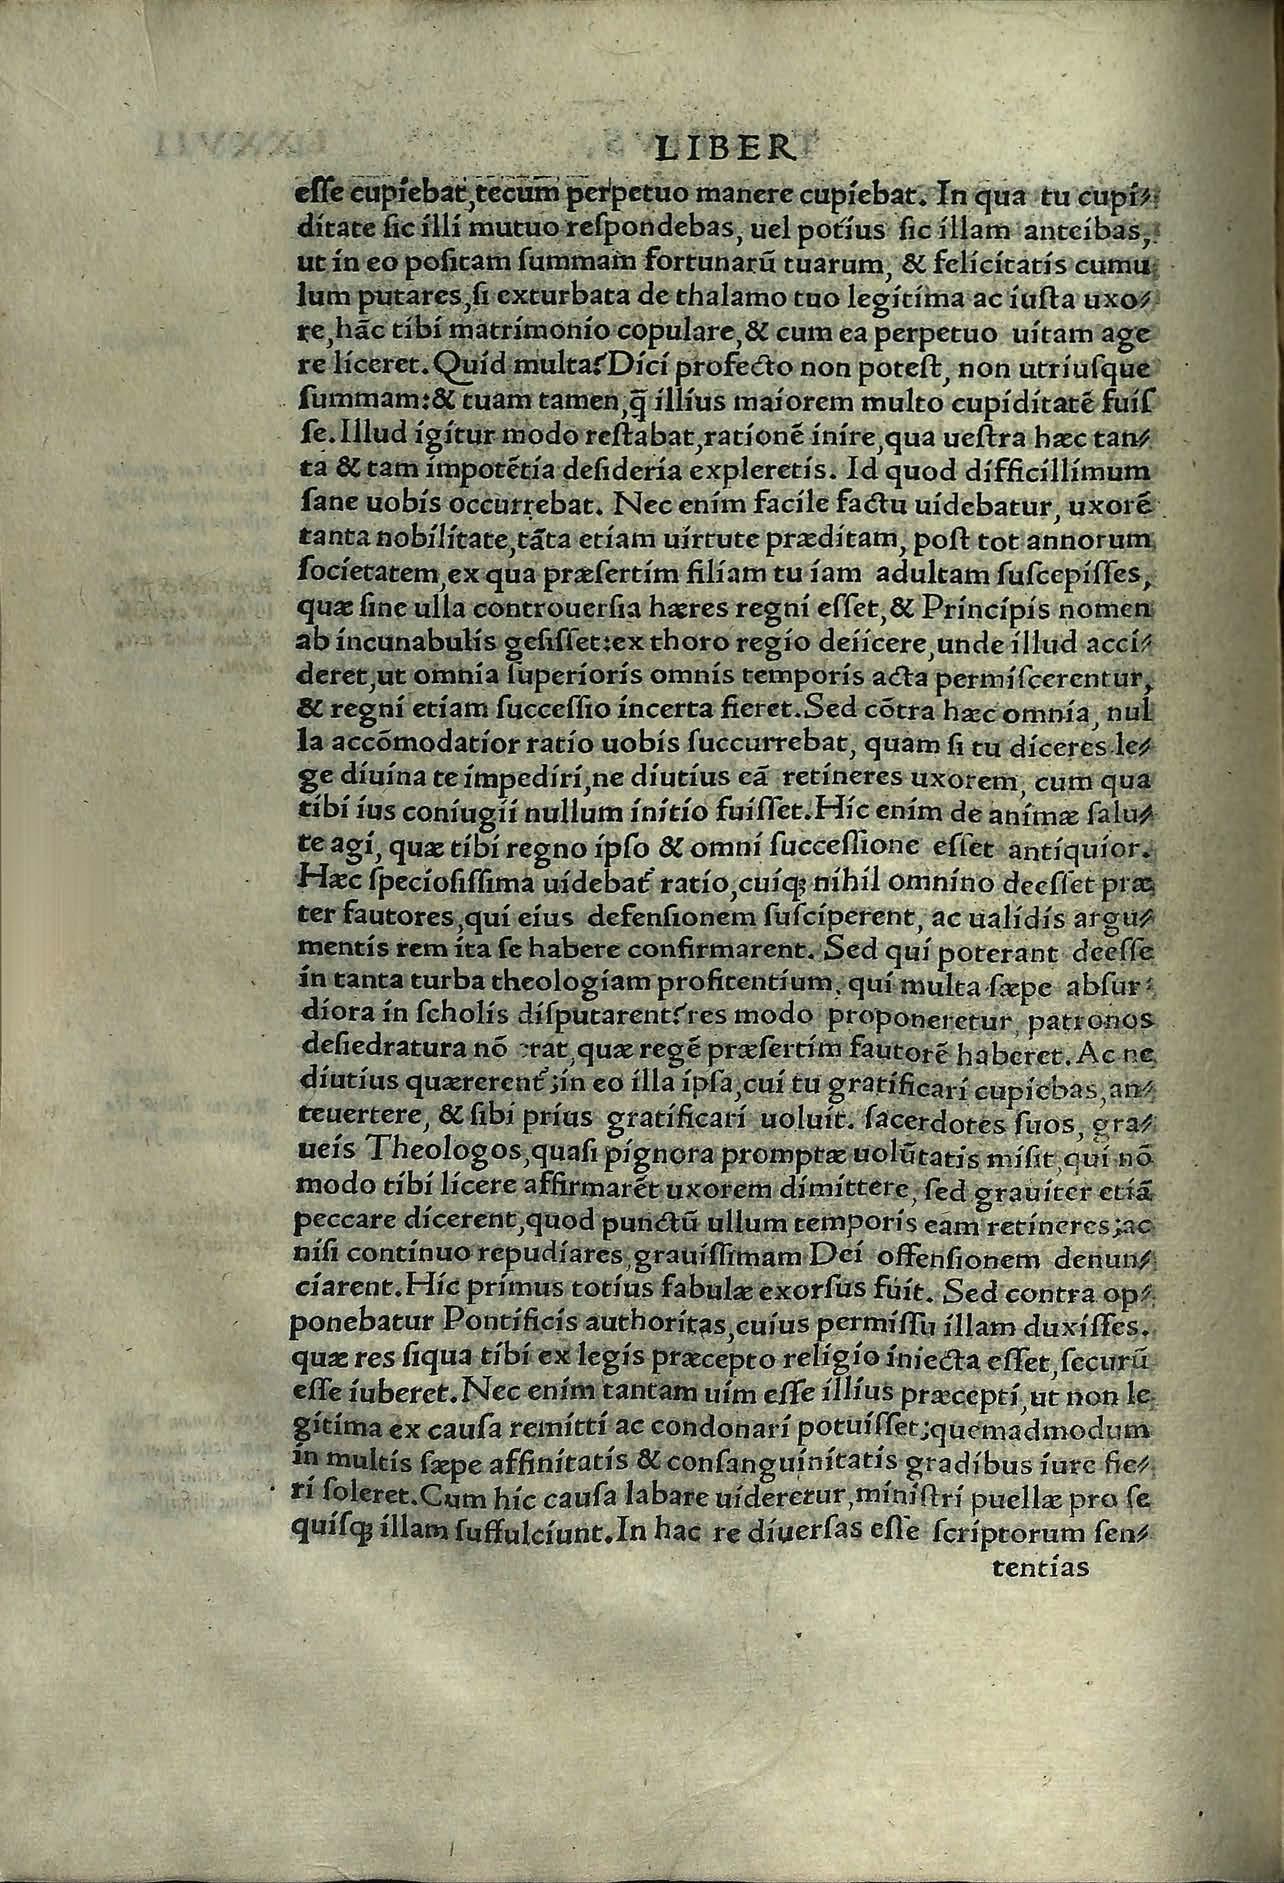 LIBER
eſſe cupiebat, tecum perpetuo manere cupiebat. In qua tu cupi⸗
ditate ſic illi mutuo reſpondebas, uel potius ſic illam anteibas,
ut in eo poſitam ſummam fortunarū tuarum, & felicitatis cumu
lum putares, ſi exturbata de thalamo tuo legitima ac iuſta uxo⸗
re, hāc tibi matrimonio copulare, & cum ea perpetuo uitam age
re liceret. Quid multa? Dici profecto non poteſt, non utriuſque
ſummam: & tuam tamen, q̄ illius maiorem multo cupiditatē fuiſ
ſe. Illud igitur modo reſtabat, rationē inire, qua ueſtra hæc tan⸗
ta & tam impotētia deſideria expleretis. Id quod difficillimum
ſane uobis occurrebat. Nec enim facile factu uidebatur, uxorē
tanta nobilitate, tāta etiam uirtute præditam, poſt tot annorum
ſocietatem, ex qua præſertim filiam tu iam adultam ſuſcepiſſes,
quæ ſine ulla controuerſia hæres regni eſſet, & Principis nomen
ab incunabulis geſiſſet: ex thoro regio deiicere, unde illud acci⸗
deret, ut omnia ſuperioris omnis temporis acta permiſcerentur,
& regni etiam ſucceſſio incerta fieret. Sed cōtra hæc omnia, nul
la accōmodatior ratio uobis ſuccurrebat, quam ſi tu diceres le⸗
ge diuina te impediri, ne diutius eā retineres uxorem, cum qua
tibi ius coniugii nullum initio fuiſſet. Hic enim de animæ ſalu⸗
te agi, quæ tibi regno ipſo & omni ſucceſſione eſſet antiquior.
Hæc ſpecioſiſſima uidebat᷑ ratio, cuiq; nihil omnino deeſſet præ
ter fautores, qui eius defenſionem ſuſciperent, ac ualidis argu⸗
mentis rem ita ſe habere confirmarent. Sed qui poterant deeſſe
in tanta turba theologiam profitentium, qui multa ſæpe abſur⸗
diora in ſcholis diſputarent? res modo proponeretur, patronos
deſiedratura nō erat, quæ regē præſertim fautorē haberet. Ac ne
diutius quærerent᷑; in eo illa ipſa, cui tu gratificari cupiebas, an⸗
teuertere, & ſibi prius gratificari uoluit. ſacerdotes ſuos, gra⸗
ueis Theologos, quaſi pignora promptæ uolūtatis miſit, qui nō
modo tibi licere affirmarēt uxorem dimittere, ſed grauiter etiā
peccare dicerent, quod punctū ullum temporis eam retineres; ac
niſi continuo repudiares, grauiſſimam Dei offenſionem denun⸗
ciarent. Hic primus totius fabulæ exorſus fuit. Sed contra op⸗
ponebatur Pontificis authoritas, cuius permiſſu illam duxiſſes.
quæ res ſiqua tibi ex legis præcepto religio iniecta eſſet, ſecurū
eſſe iuberet. Nec enim tantam uim eſſe illius præcepti, ut non le
gitima ex cauſa remitti ac condonari potuiſſet; quemadmodum
in multis ſæpe affinitatis & conſanguinitatis gradibus iure fie⸗
ri ſoleret. Cum hic cauſa labare uideretur, miniſtri puellæ pro ſe
quiſq; illam ſuffulciunt. In hac re diuerſas eſſe ſcriptorum ſen⸗
tentias